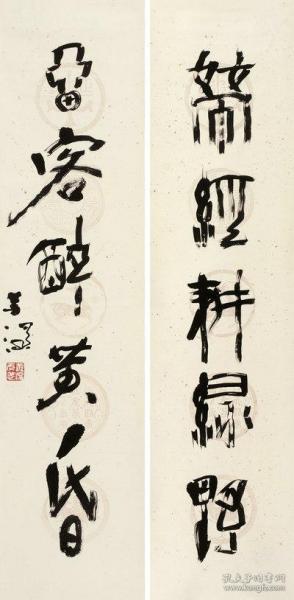 帶經耕綠野
留客醉黄昏
孔夫子旧书网